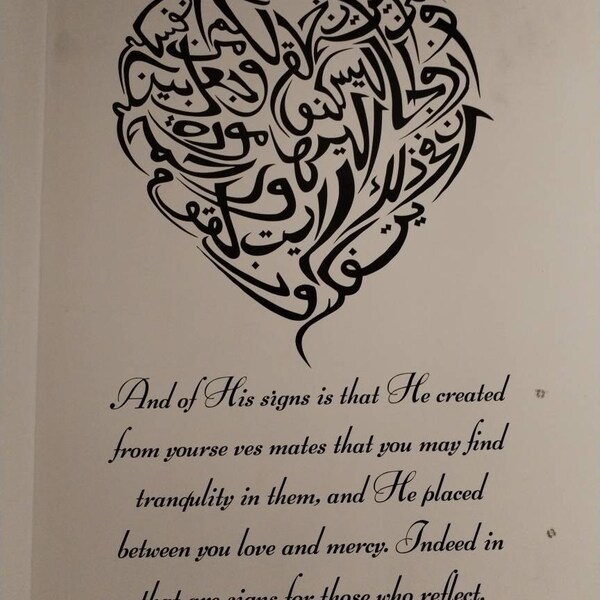 أزواجا لتسكنوا إليها وجعل بينكم مودة ورحمة إن في ذلك لآيت لقوم يتفكرون
And of His signs is that He created
from yourse ves mates that you may find
tranqulity in them, and He placed
between you love and mercy. Indeed in
that are signs for those who reflect.